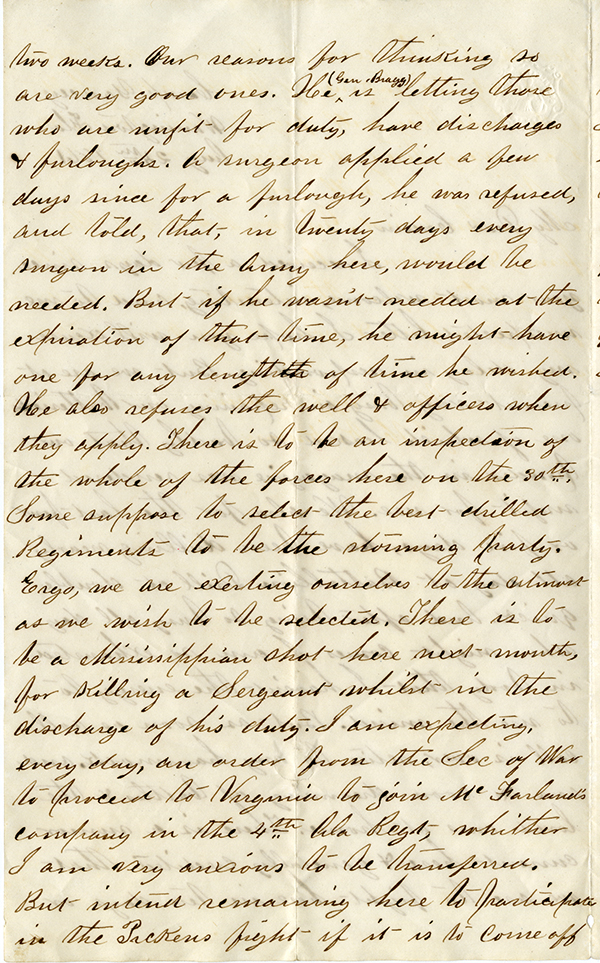 two weeks. Our reasons for thinking so
are very good ones. He ^(Gen. Bragg) is letting those
who are unfit for duty, have discharges
& furloughs. A surgeon applied a few
days since for a furlough, he was refused,
and told, that, in twenty days every
surgeon in the Army here, would be
needed. But if he wasn't needed at the
expiration of that time, he might have
one for any length of time he wished.
He also refuses the well & officers when
they apply. There is to be an inspection of
the whole of the forces here on the 30th.
Some suppose to select the best drilled
Regiments to be the storming party.
Ergo, we are exerting ourselves to the utmost
as we wish to be selected. There is to
be a Mississippian shot here next month,
for killing a Sergeant whilst in the
discharge of his duty. I am expecting,
every day, an order from the Sec of War
to proceed to Virginia to join McFarland's
company in the 4th Ala Regt, whither
I am very anxious to be transferred.
But intend remaining here to participate
in the Pickens fight if it is to come off